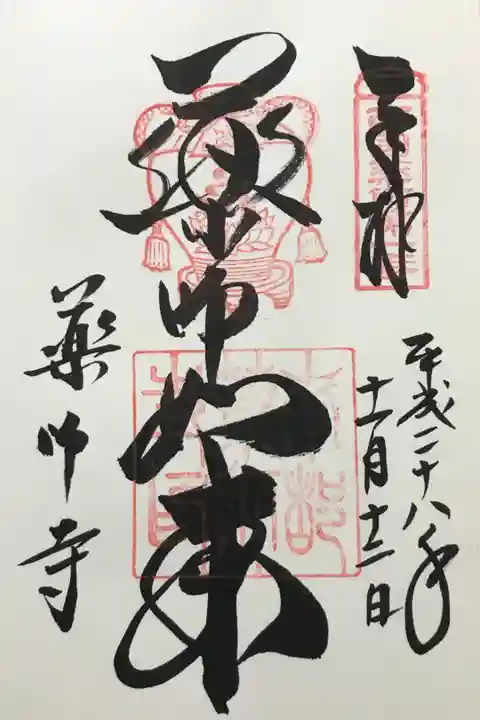 奉拝
平成二十八年
十一月十二日
薬師如来
薬師寺